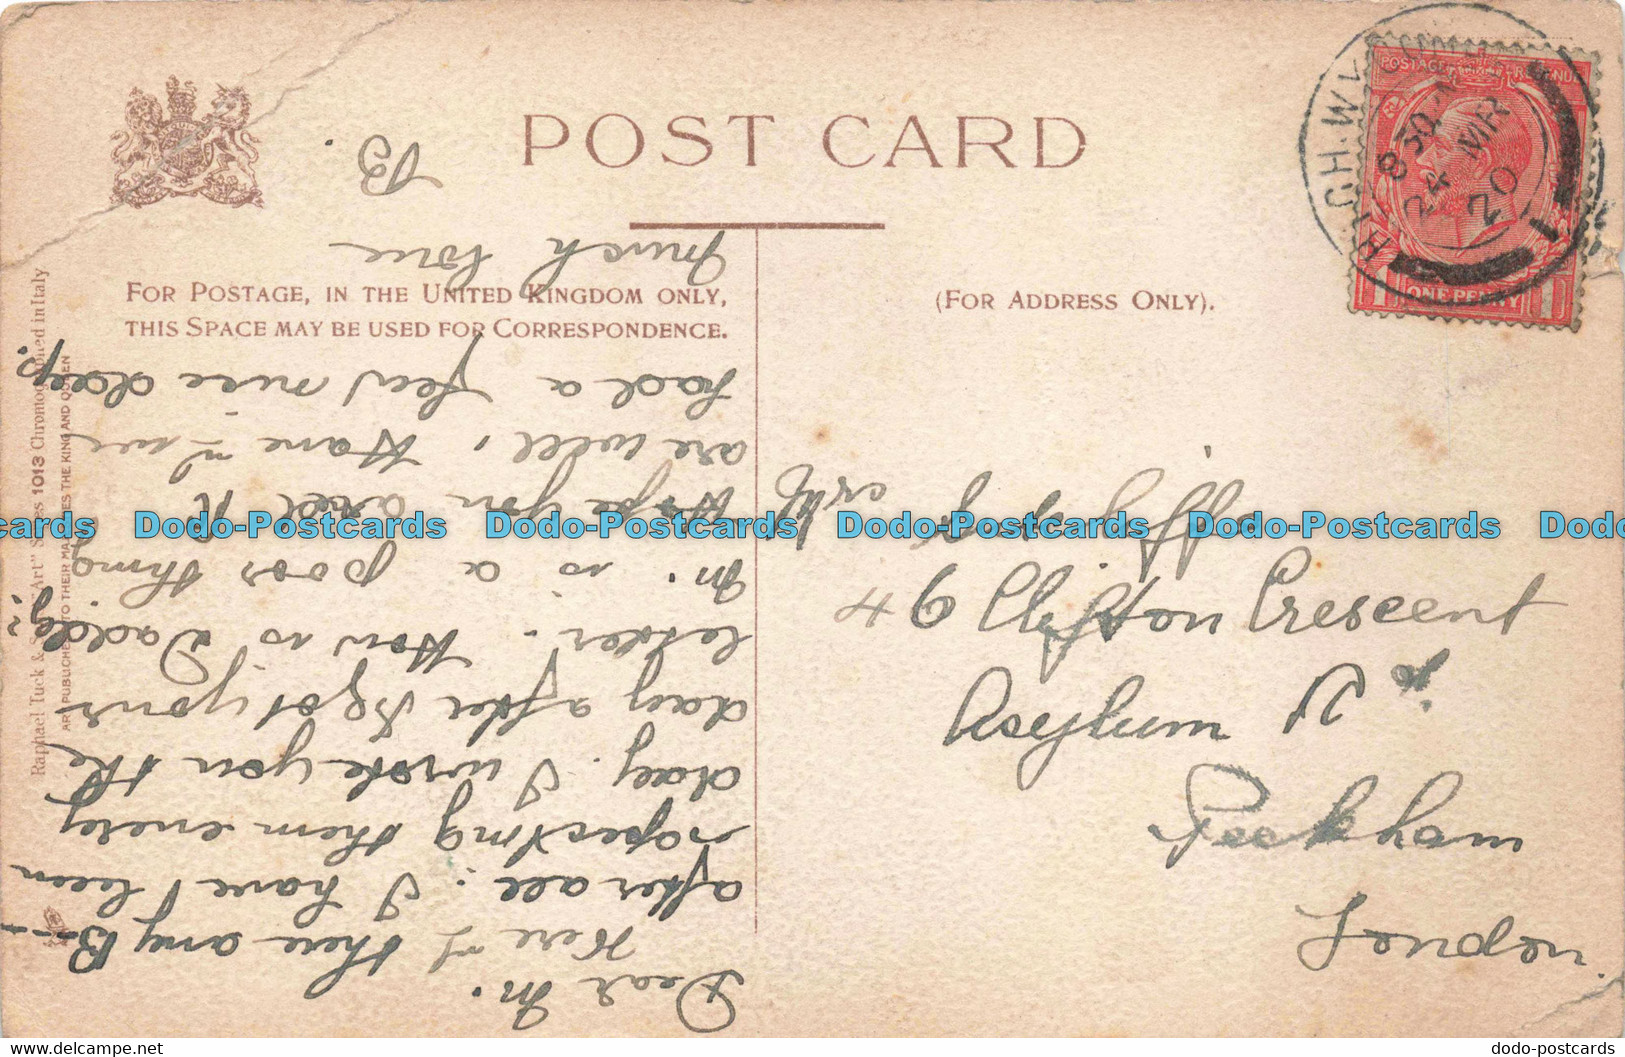 POST CARD
FOR POSTAGE, IN THE UNITED KINGDOM ONLY,
THIS SPACE MAY BE USED FOR CORRESPONDENCE.
(FOR ADDRESS ONLY).
POSTAGE REVENUE
1 ONE PENNY 1
HIGH WYCOMBE
8 30
24 MR
20
46 Clifton Crescent
Asylum Rd
Peckham
London.
Dear M.
Here of there any B---
after all. I have been
specting them every
day. I wrote you the
day after I got yours
letter. How is Daddy?
M. is a poor thing
Hope you and R
are well, Have we
had a few nice days.
much love
B.
Raphael Tuck & "Art" Series 1013 Chromographed in Italy
ART PUBLISHERS TO THEIR MAJESTIES THE KING AND QUEEN
Dodo-Postcards Dodo-Postcards Dodo-Postcards Dodo-Postcards
dodo-postcards.com
dodo-postcards.com